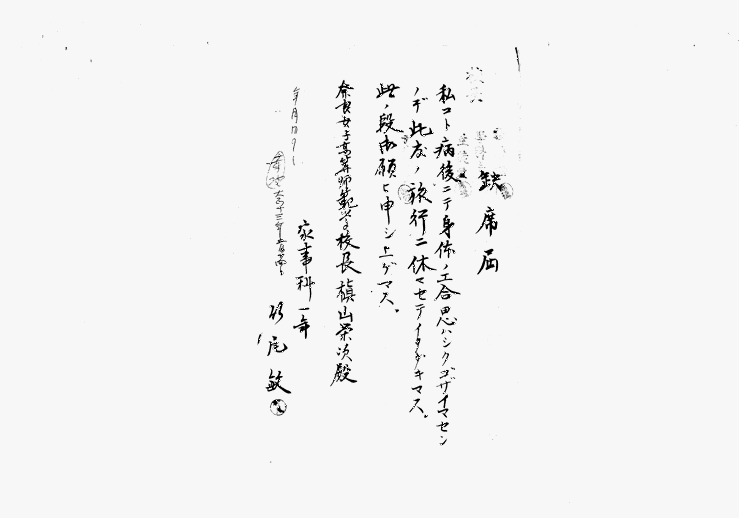 欠席届
私コト病後ニテ身体ノ工合思ハシクゴザイマセン
ノデ此度ノ旅行ニ休マセテイタダキマス。
此ノ段御願ヒ申シ上ゲマス。
奈良女子高等師範学校長槙山栄次殿
年月日
大正十三年
家事科一年
尾敏